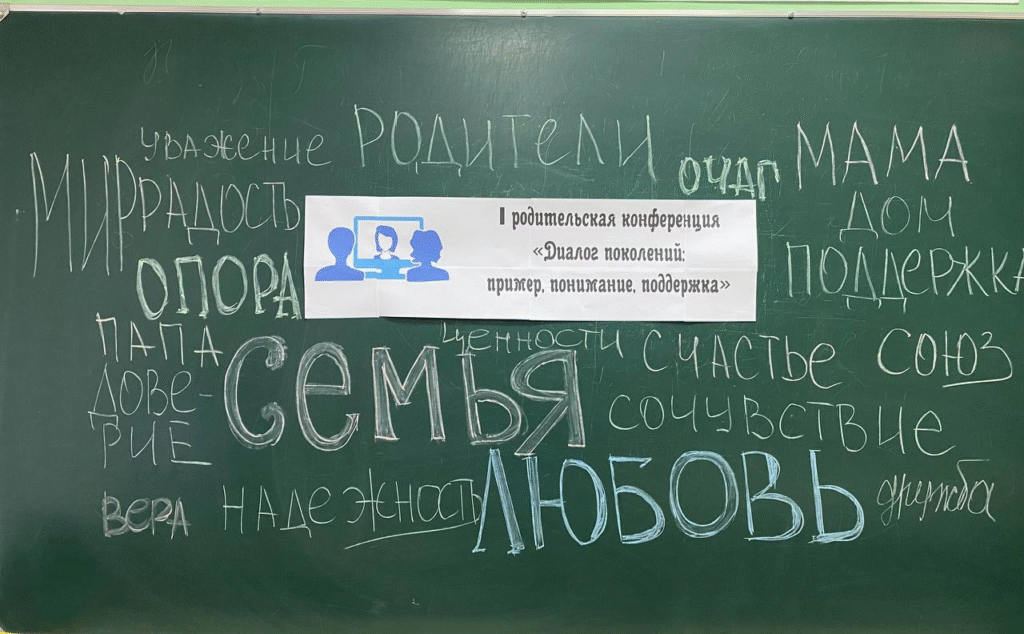 уважение РОДИТЕЛИ ОЧАГ МАМА
МИР РАДОСТЬ ДОМ
I родительская конференция
«Диалог поколений:
пример, понимание, поддержка»
ОПОРА ПОДДЕРЖКА
ПАПА СЕМЬЯ ценности СЧАСТЬЕ СОЮЗ
ДОВЕ-
РИЕ СОЧУВСТВИЕ
ВЕРА НАДЕЖНОСТЬ ЛЮБОВЬ дружба